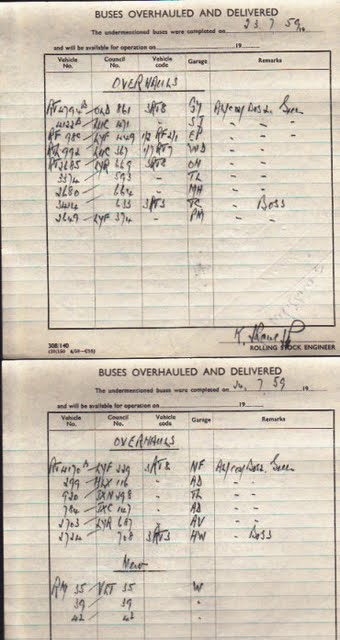 BUSES OVERHAULED AND DELIVERED
The undermentioned buses were completed on 23.7.59 19
and will be available for operation on 19
Vehicle No. Council No. Vehicle code Garage Remarks
OVERHAULS
OLD 861 3RT8 GY
LUC 471 - ST - - -
RF 98 LYF 449 1/2 RF2/1 EP - - -
LUC 367 1/7 RT7 WD - - -
LYR 669 3RT8 OM - - -
3374 593 - TL - -
2680 664 - MH - -
3444 633 3RT3 TC - Boss
2649 LYF 374 - PM - -
K. Shave
308/140 ROLLING STOCK ENGINEER
BUSES OVERHAULED AND DELIVERED
The undermentioned buses were completed on 24.7.59 19
and will be available for operation on 19
Vehicle No. Council No. Vehicle code Garage Remarks
OVERHAULS
RT4170 LYF 229 3RT8 NF
299 HLX 116 - AD - -
920 JXN 298 - TL - -
784 JXC 147 - AD - -
2703 LYR 687 - AV - -
2724 708 3RT3 HW - Boss
New
RM 35 VLT 35 W
39 39
42 42